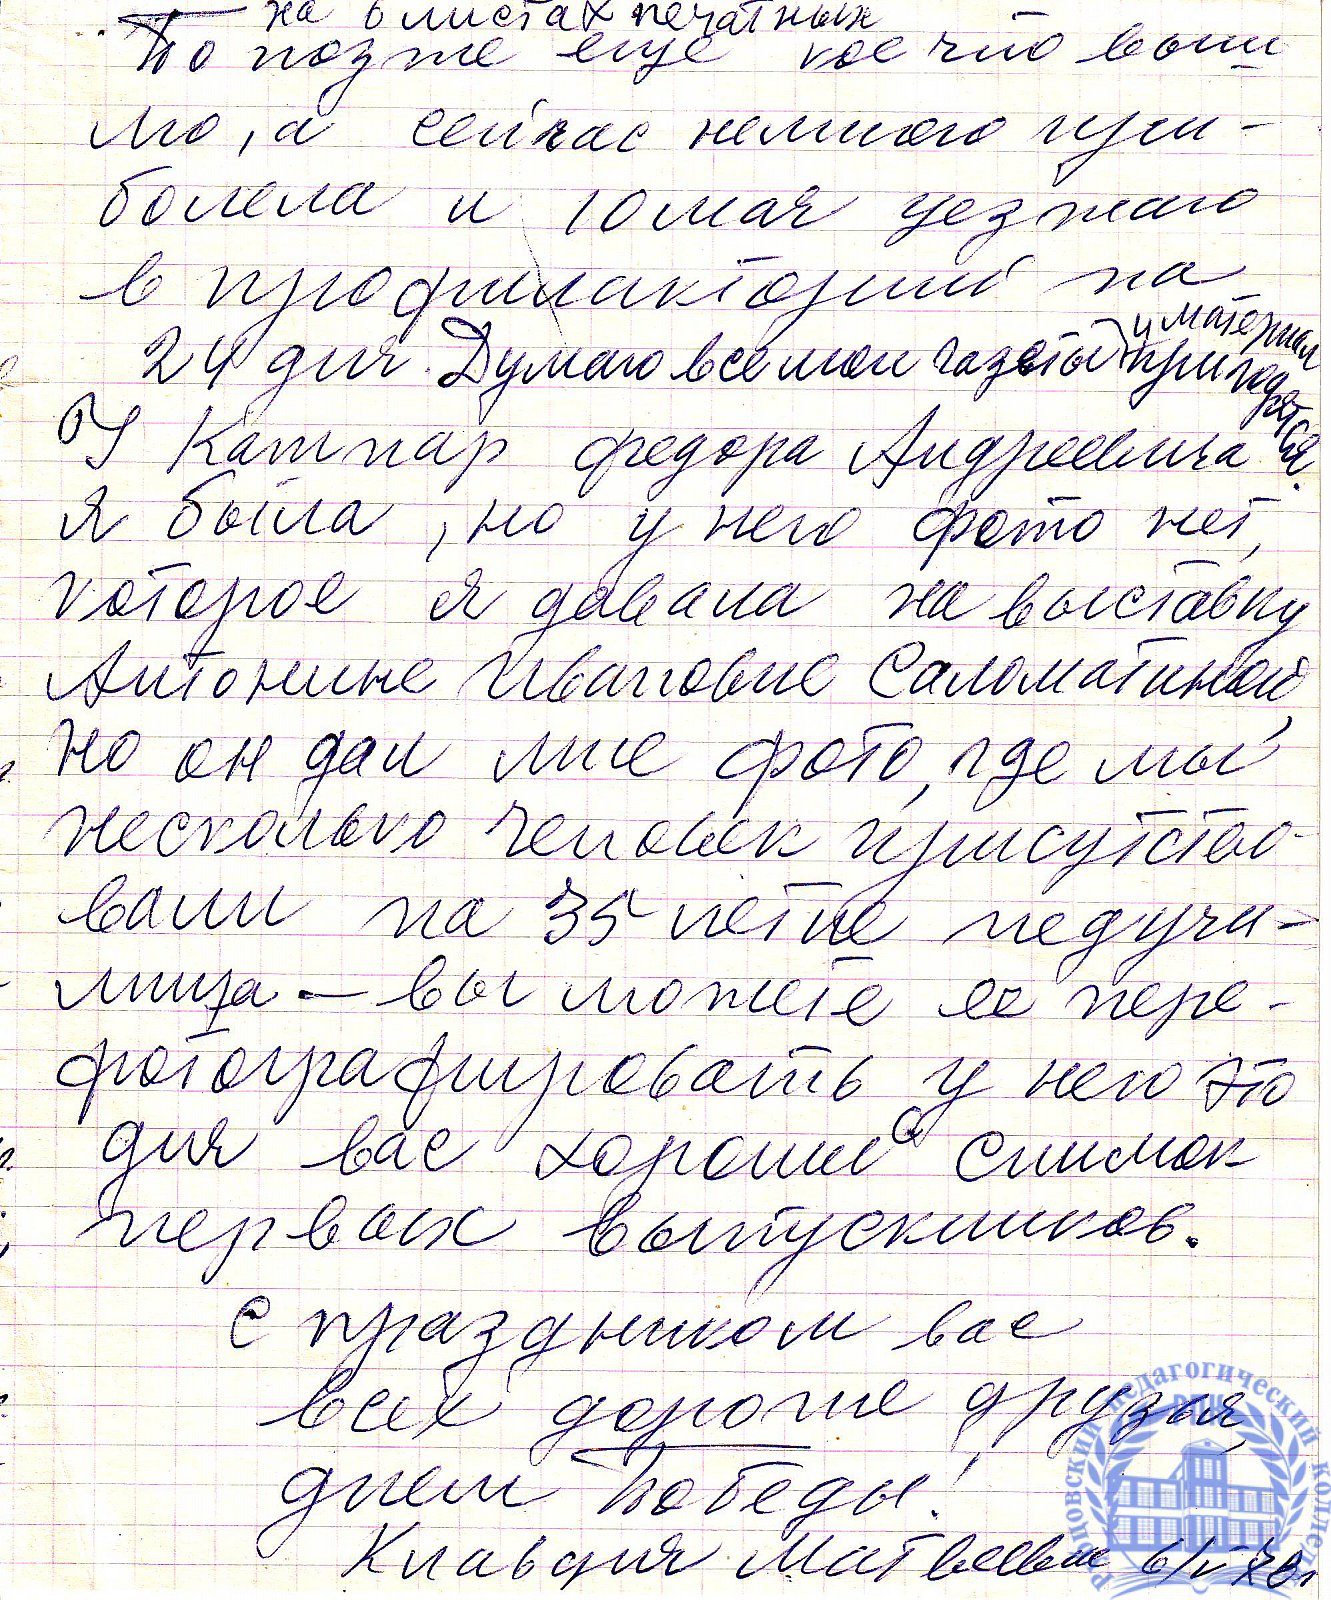 на 6 листах печатных
По позже еще кое что выш
лю, а сейчас немного при-
болела и 10 мая уезжаю
в профилакторий на
24 дня. Думаю все мои газеты и материал пригодятся.
У Каттнар Федора Андреевича
я была, но у него фото нет,
которое я давала на выставку
Антонине Ивановне Саломатиной,
но он дал мне фото, где мы
несколько человек присутство-
вали на 35 летие педучи-
лища — вы можете ее пере-
фотографировать у него это
для вас хороший снимок
первых выпускников.
С праздником вас
всех дорогие друзья,
днем Победы!
Клавдия Матвеевна 6/V 78г
педагогический
колледж